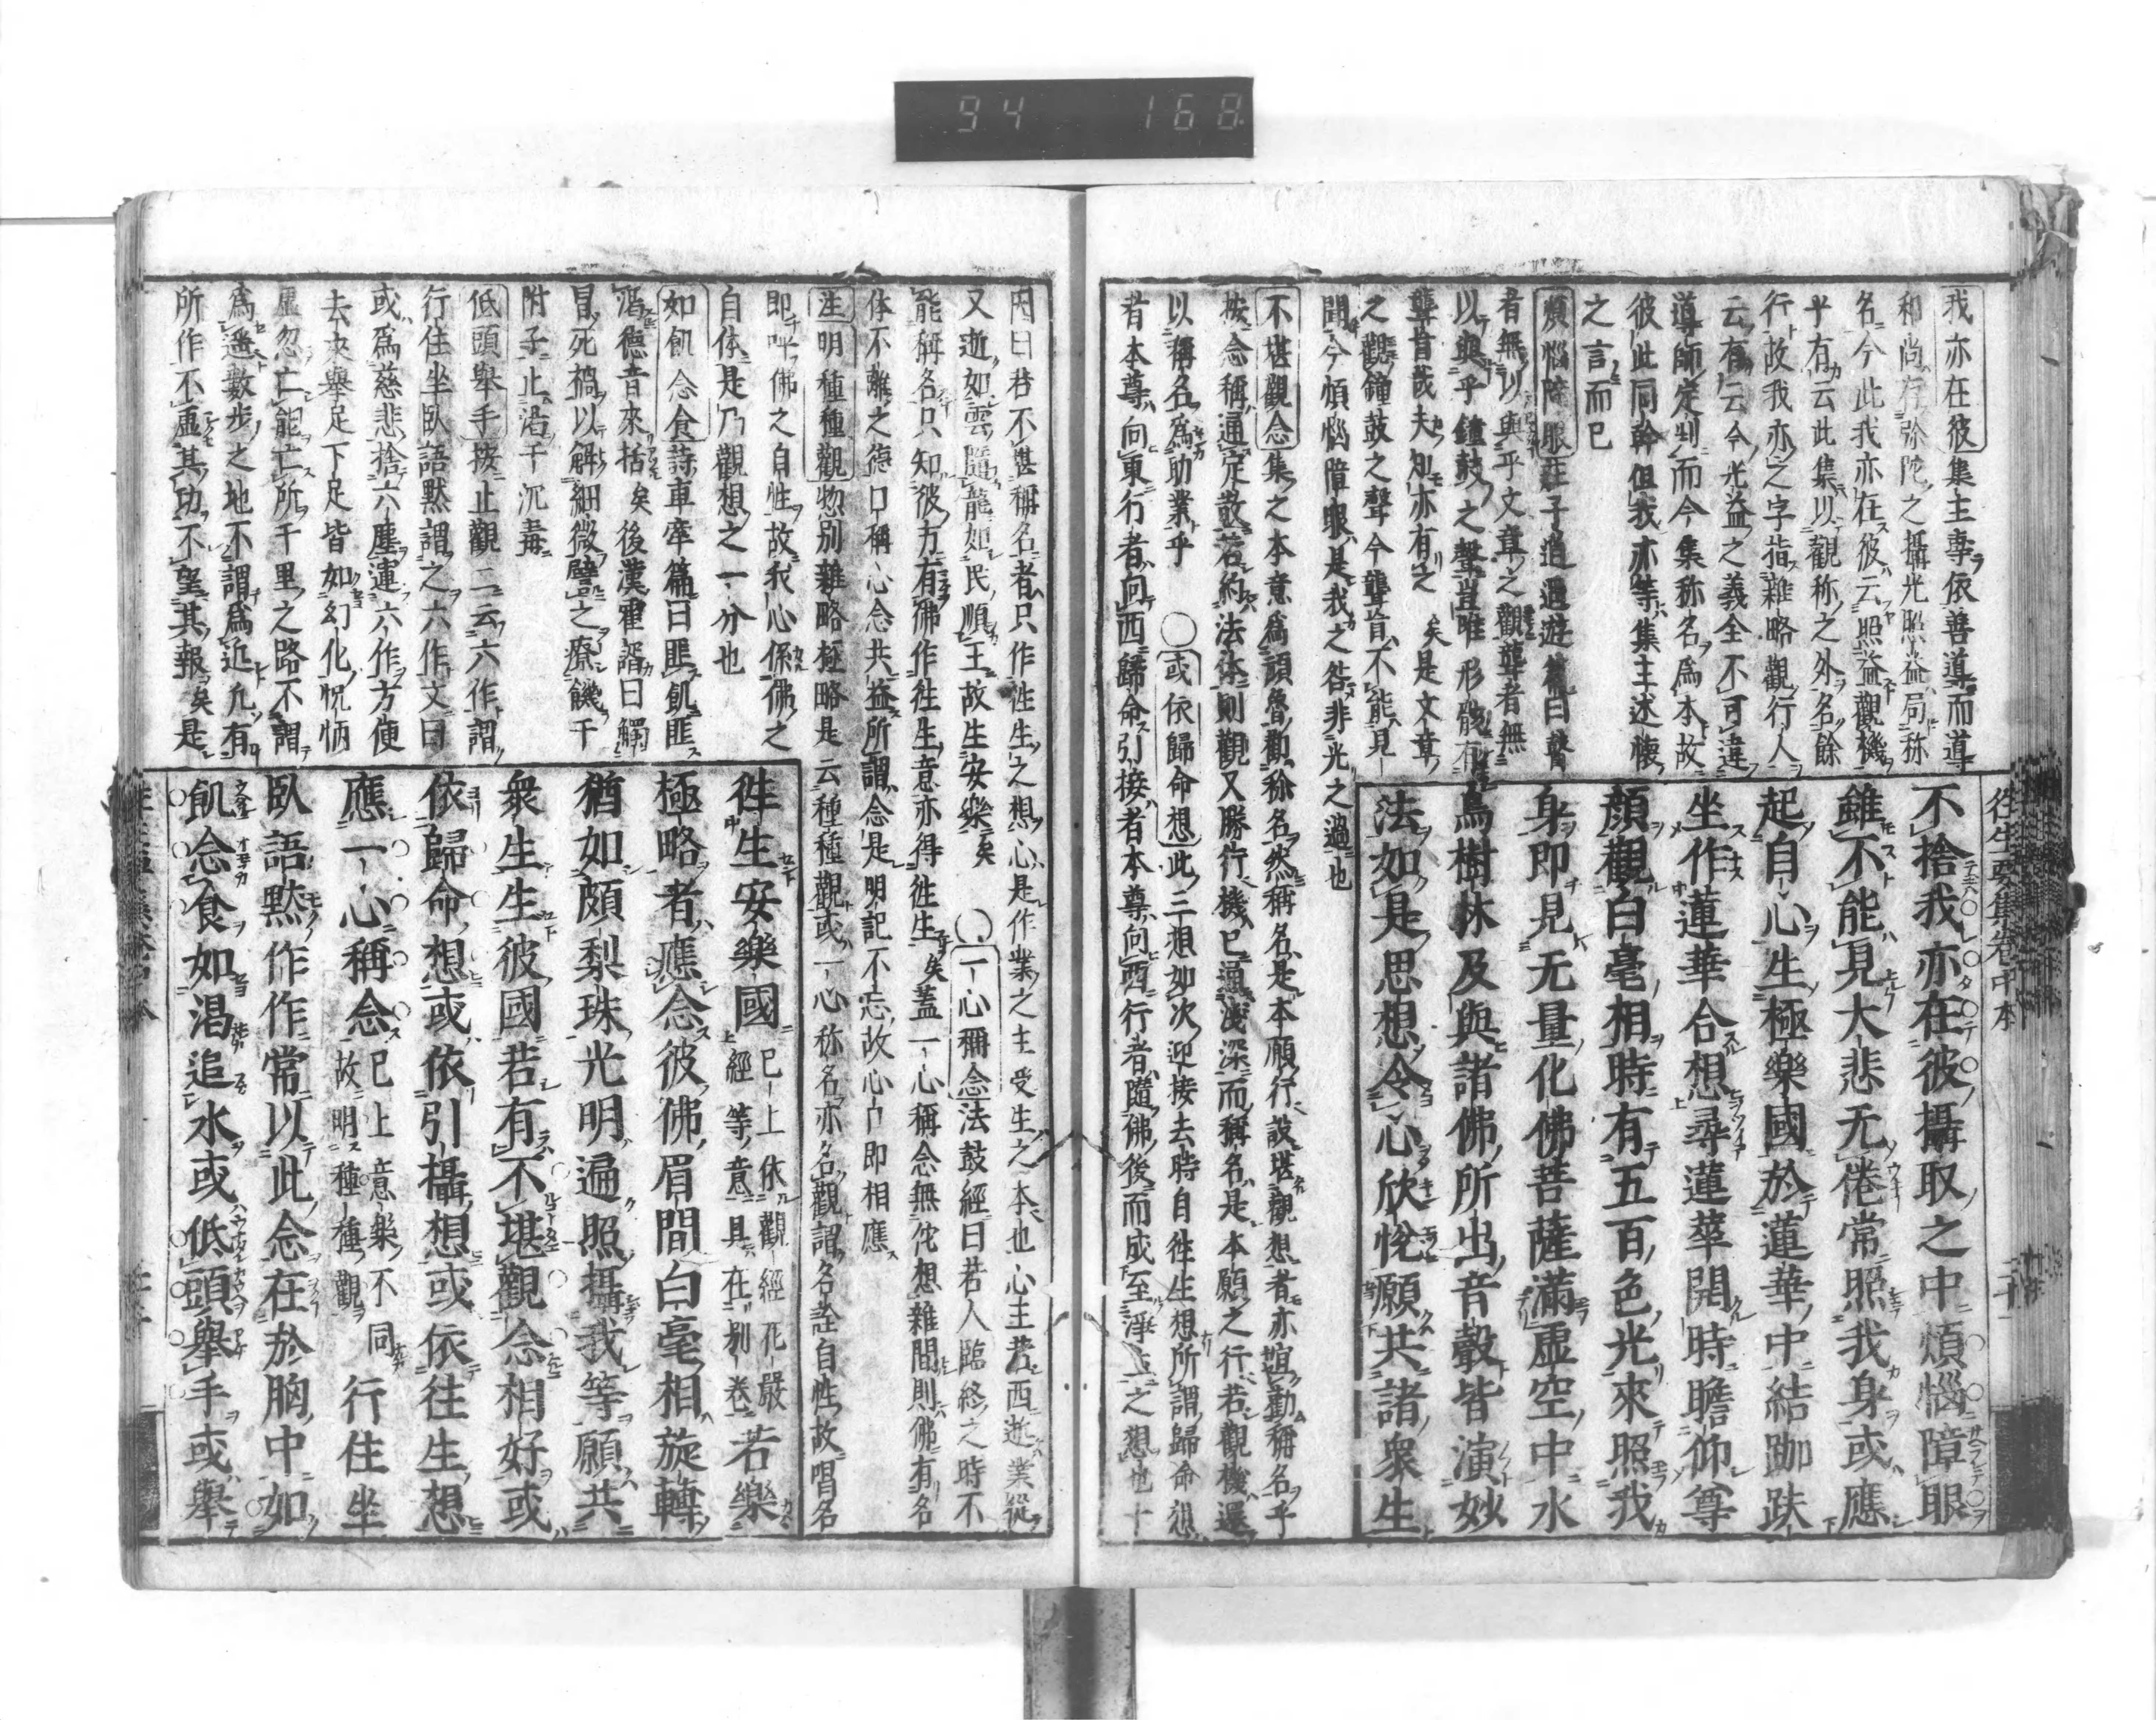 94 168
往生要集卷中本
我亦在彼集主專依善導而導
和尚在弥陀之攝光照益局称
名今此我亦在彼云照益觀機
乎有云此集以觀称之外名餘
行故我亦之字指雜略觀行人
云有云今光益之義全不可違
導師定判而今集称名為本故
彼此同幹但我亦等集主述懷
之言而已
煩惱障眼莊子逍遥遊篇曰瞽
者無以與乎文章之觀聾者無
以與乎鐘鼓之聲豈唯形骸有
聾盲哉夫知亦有之矣是文章
之觀鐘鼓之聲今聾盲不能見
聞今煩惱障眼是我之咎非光之過也
不堪觀念集之本意為頭魯勸称名然稱名是本願行設堪觀想者亦誼勸稱名乎
按念稱通定散若約法体則觀又勝行機已通淺深而稱名是本願之行若觀機還
以稱名為助業乎 ○或依歸命想此三想如次迎接去時自往生想所謂歸命想
者本尊向東行者向西歸命引接者本尊向西行者隨佛後而成至淨土之想也十
不捨我亦在彼攝取之中煩惱障眼
雖不能見大悲无倦常照我身或應
起自心生極樂國於蓮華中結跏趺
坐作蓮華合想尋蓮華開時瞻仰尊
顔觀白毫相時有五百色光來照我
身即見无量化佛菩薩滿虛空中水
鳥樹林及與諸佛所出音聲皆演妙
法如是思想令心欣悅願共諸衆生
因曰若不堪稱名者只作往生之想心是作業之主受生之本也心主若西逝業從
又逝如雲隨龍如民順王故生安樂矣 ○一心稱念法鼓經曰若人臨終之時不
能稱名只知彼方有佛作往生意亦得往生矣蓋一心稱念無佗想雜間則佛有名
体不離之德口稱心念共益所謂念是明記不忘故心口即相應
注明種種觀惣別雜略極略是云種種觀或一心称名亦名觀謂名詮自性故唱名
即呼佛之自性故我心係佛之
自体是乃觀想之一分也
如飢念食詩車舝篇曰匪飢匪
渴德音來括矣後漢霍諝曰觸
冒死禍以解細微譬之療饑于
附子止渴于沉毒
低頭舉手按止觀二云六作謂
行住坐臥語默謂之六作文曰
或為慈悲捨六塵運六作方便
去來舉足下足皆如幻化怳恦
虛忽亡能亡所千里之路不謂
為遥數步之地不謂為近凢有
所作不虛其功不望其報矣是
往生安樂國已上依觀經花嚴經等意具在別卷若樂
極略者應念彼佛眉間白毫相旋轉
猶如頗梨珠光明遍照攝我等願共
衆生生彼國若有不堪觀念相好或
依歸命想或依引攝想或依往生想
應一心稱念已上意樂不同故明種種觀行住坐
臥語黙作作常以此念在於胸中如
飢念食如渴追水或低頭舉手或舉